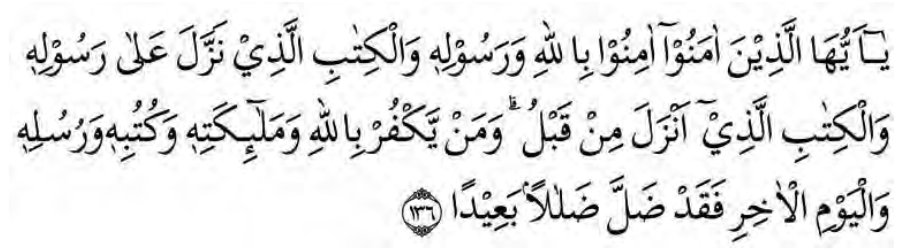 يٰٓاَيُّهَا الَّذِيْنَ اٰمَنُوْٓا اٰمِنُوْا بِاللّٰهِ وَرَسُوْلِهٖ وَالْكِتٰبِ الَّذِيْ نَزَّلَ عَلٰى رَسُوْلِهٖ
وَالْكِتٰبِ الَّذِيْٓ اَنْزَلَ مِنْ قَبْلُ ۗ وَمَنْ يَّكْفُرْ بِاللّٰهِ وَمَلٰۤىِٕكَتِهٖ وَكُتُبِهٖ وَرُسُلِهٖ
وَالْيَوْمِ الْاٰخِرِ فَقَدْ ضَلَّ ضَلٰلًاۢ بَعِيْدًا ﴿١٣٦﴾